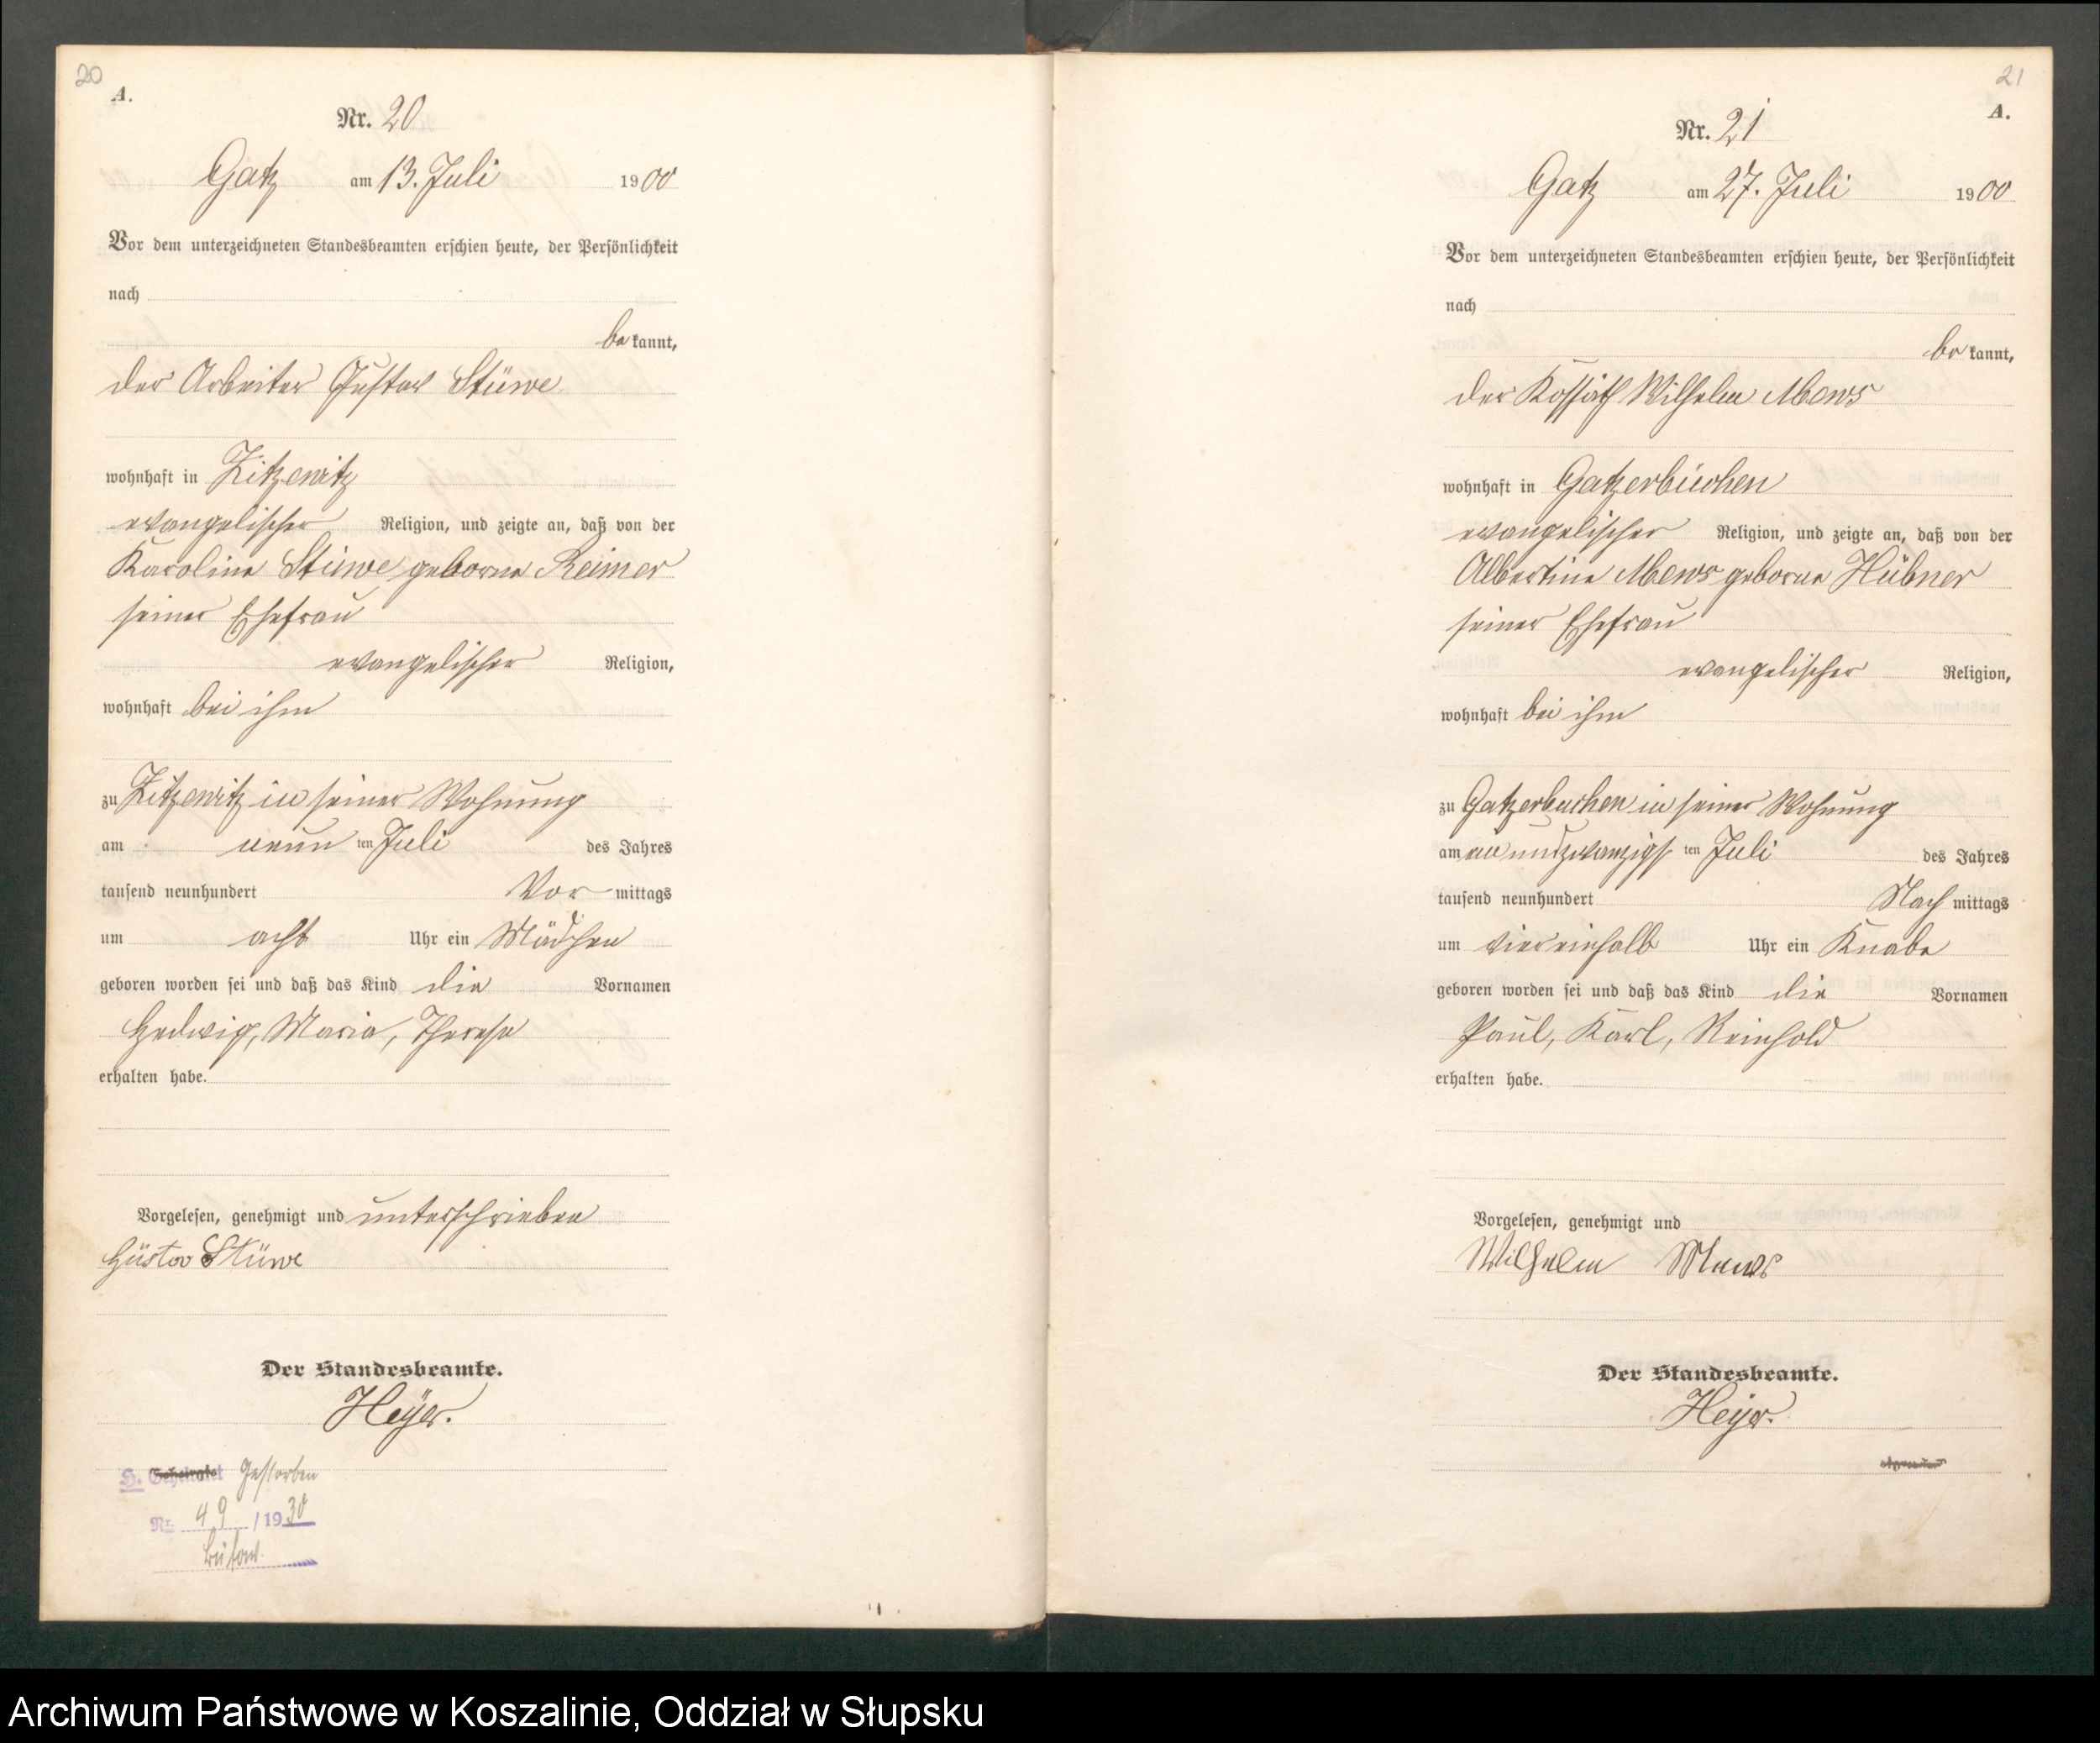 20
A.
Nr. 20
Gatz am 13. Juli 1900
Vor dem unterzeichneten Standesbeamten erschien heute, der Persönlichkeit
nach
be kannt,
der Arbeiter Gustav Stüwe
wohnhaft in Zitzewitz
evangelischer Religion, und zeigte an, daß von der
Karoline Stüwe geborne Reimer
seiner Ehefrau
evangelischer Religion,
wohnhaft bei ihm
zu Zitzewitz in seiner Wohnung
am neun ten Juli des Jahres
tausend neunhundert Vor mittags
um acht Uhr ein Mädchen
geboren worden sei und daß das Kind die Vornamen
Hedwig, Maria, Therese
erhalten habe.
Vorgelesen, genehmigt und unterschrieben
Gustav Stüwe
Der Standesbeamte.
Heyer.
H. Geheiratet Gestorben
Nr. 49 / 1930
Bütow.
21
A.
Nr. 21
Gatz am 27. Juli 1900
Vor dem unterzeichneten Standesbeamten erschien heute, der Persönlichkeit
nach
be kannt,
der Kossäth Wilhelm Mews
wohnhaft in Gatzerbuchen
evangelischer Religion, und zeigte an, daß von der
Albertine Mews geborne Hübner
seiner Ehefrau
evangelischer Religion,
wohnhaft bei ihm
zu Gatzerbuchen in seiner Wohnung
am einundzwanzigs ten Juli des Jahres
tausend neunhundert Nach mittags
um viereinhalb Uhr ein Knabe
geboren worden sei und daß das Kind die Vornamen
Paul, Karl, Reinhold
erhalten habe.
Vorgelesen, genehmigt und
Wilhelm Mews
Der Standesbeamte.
Heyer.
Archiwum Państwowe w Koszalinie, Oddział w Słupsku